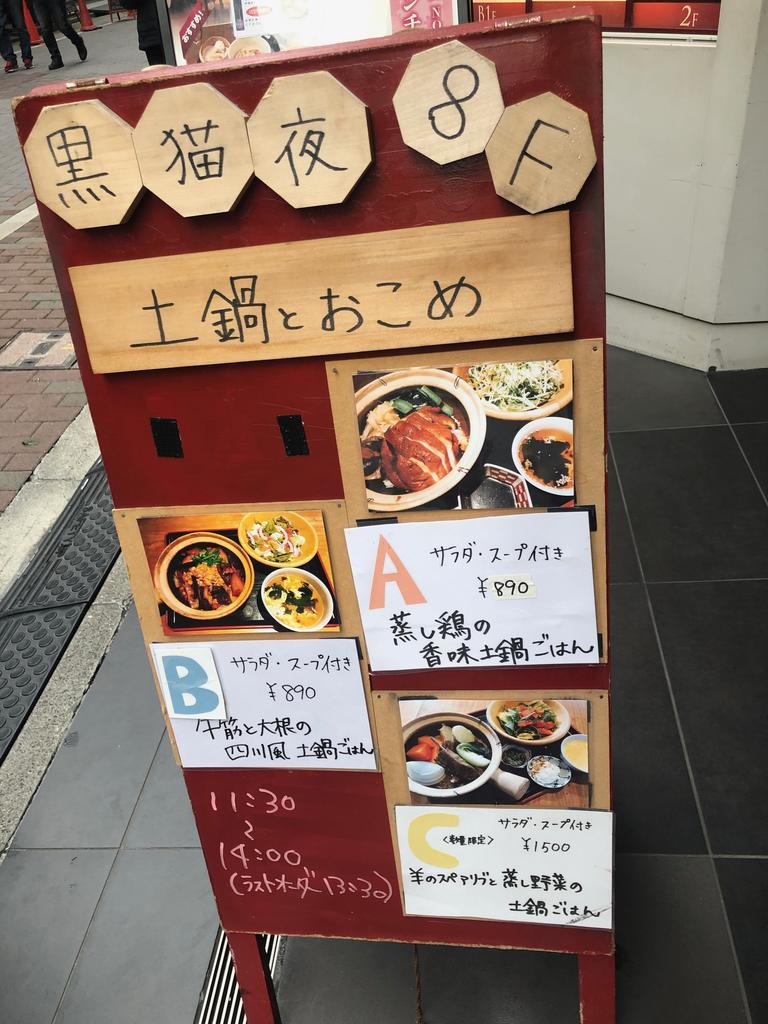 おすすめ!
B1F
2F
黒猫夜 8F
土鍋とおこめ
A サラダ・スープ付き
¥890
蒸し鶏の
香味土鍋ごはん
B サラダ・スープ付き
¥890
牛筋と大根の
四川風 土鍋ごはん
C <数量限定> サラダ・スープ付き
¥1500
羊のスペアリブと蒸し野菜の
土鍋ごはん
11:30
〜
14:00
(ラストオーダー13:30)